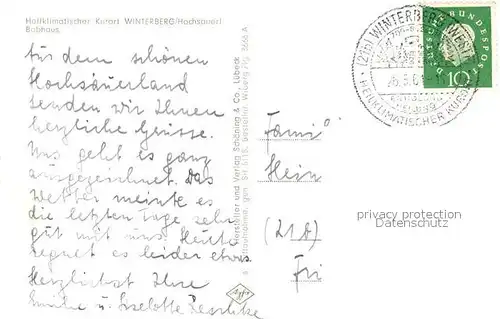 Heilklimatischer Kurort WINTERBERG/Hochsauerl
Bobhaus
Aus dem schönen
Hochsauerland
senden wir Ihnen
herzliche Grüsse.
Uns geht es ganz
ausgezeichnet. Das
Wetter meinte es
die letzten Tage sehr
gut mit uns. Heute
regnet es leider etwas.
Herzlichst Ihre
u. Liselotte
Hersteller und Verlag Schöning & Co., Lübeck
Agfa
(21b) WINTERBERG (WESTF)
HEILKLIMATISCHER KURORT
DEUTSCHE BUNDESPOST
10
Fami
Hein
(21b)
Fri
privacy protection
Datenschutz